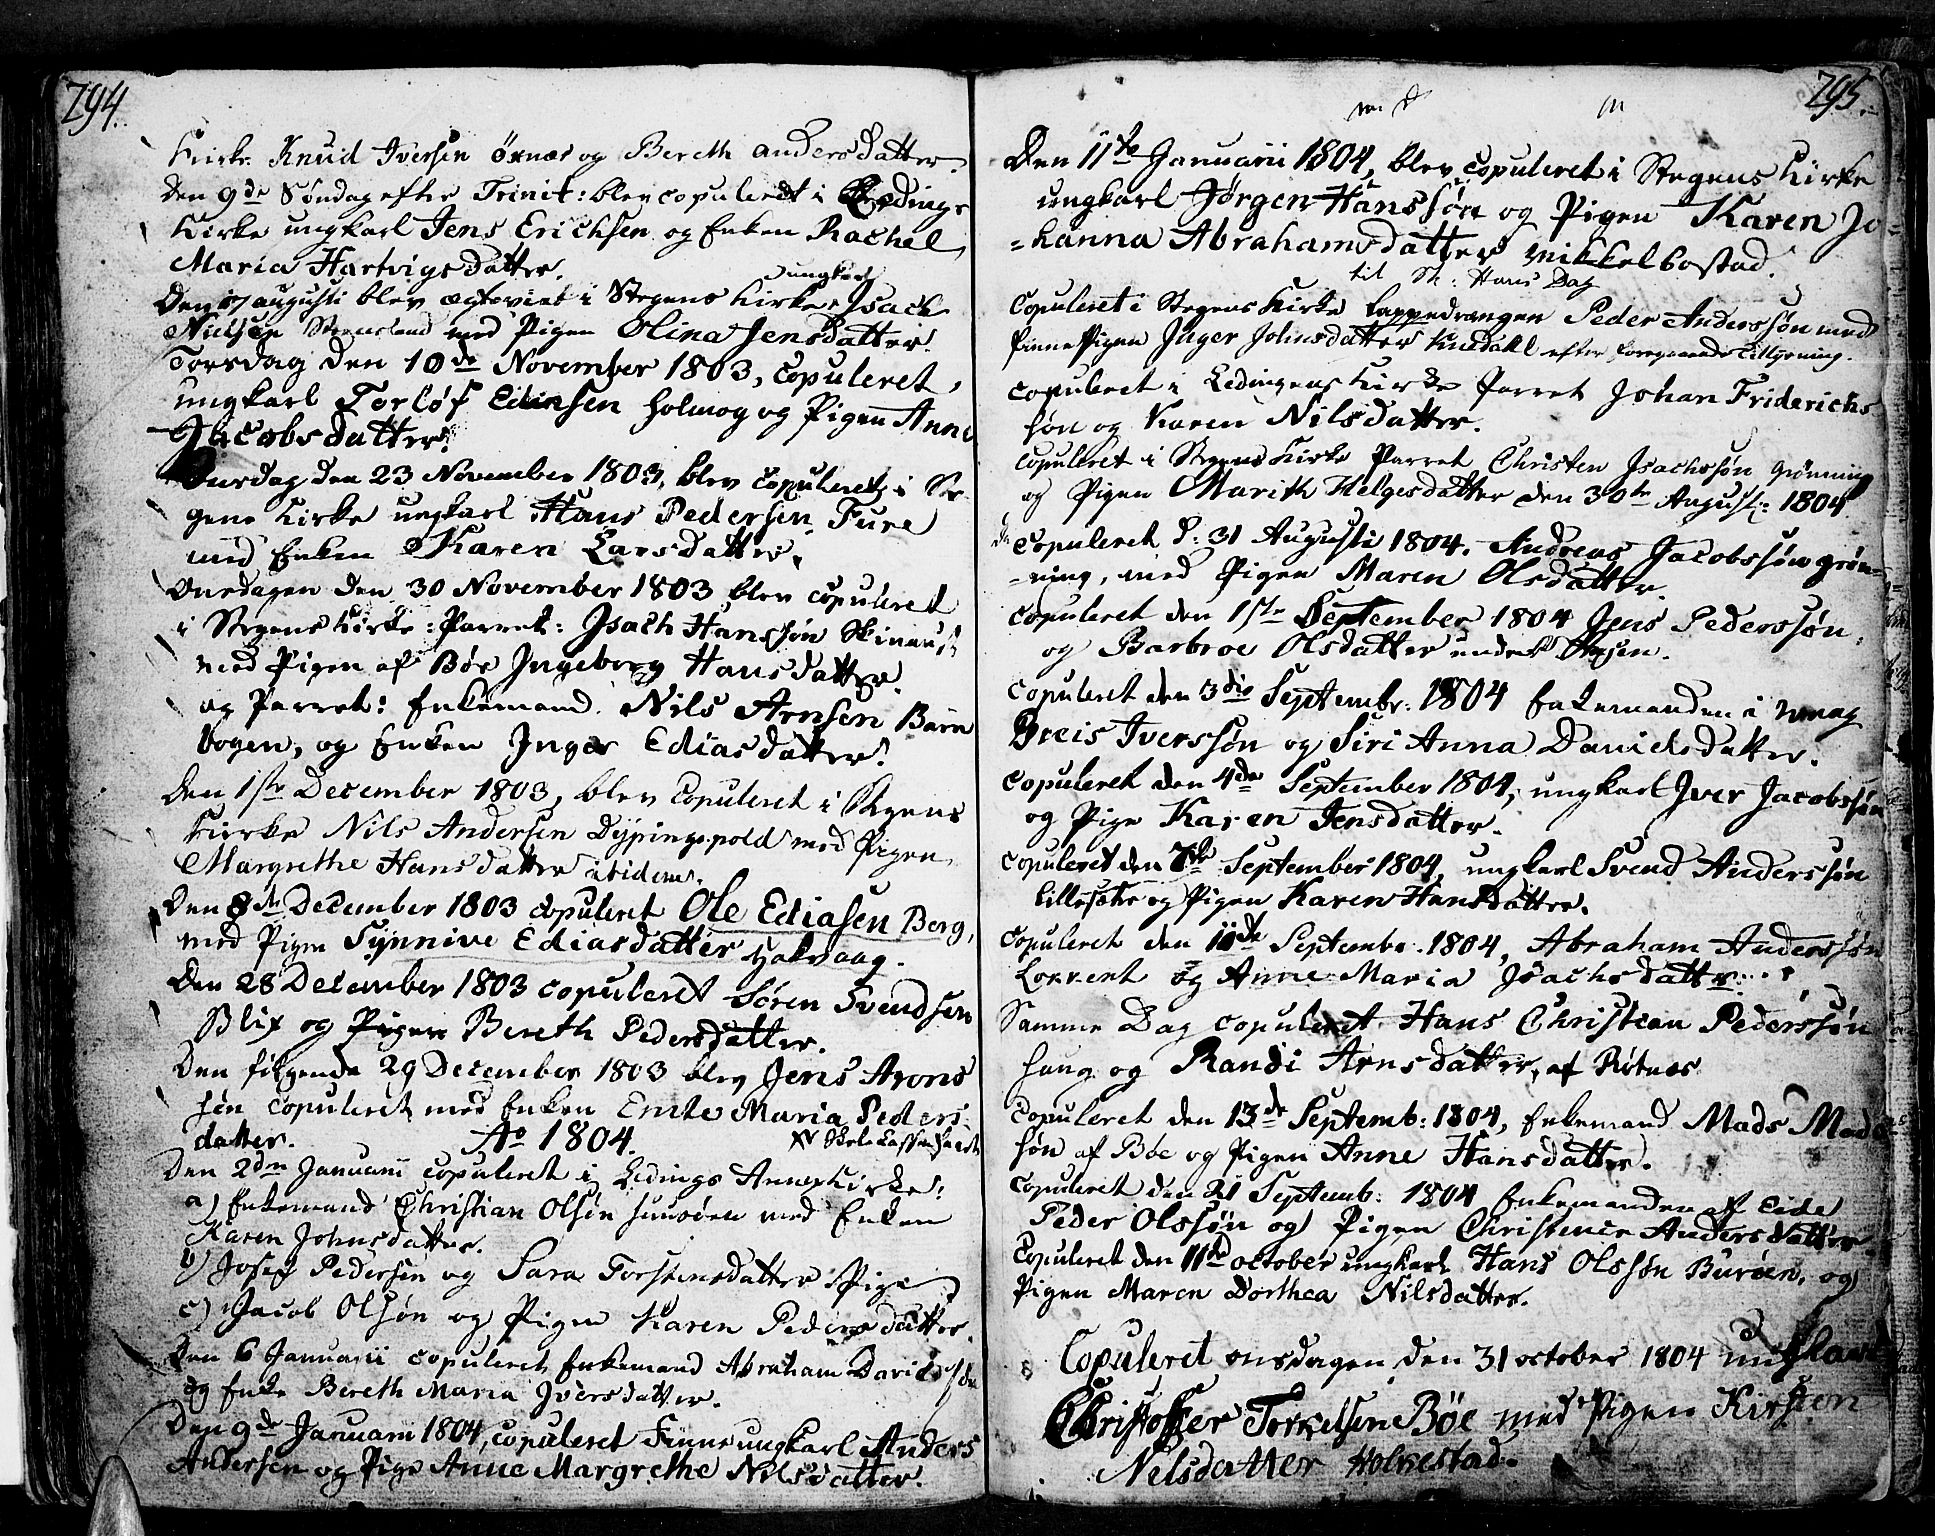 294.
Kirke Knud Iversen Øxnæs og Bereth Andersdatter.
Den 9de Søndag efter Trinit: blev copuleret i Lødings
Kirke ungkarl Jens Erichsen og Enken Rachel
Maria Hartvigsdatter.
ungkarl
Den 17 augusti blev ægteviet i Stegens Kirke Isach
Nielsen med Pigen Olina Jensdatter.
Torsdag den 10de November 1803, copuleret,
ungkarl Torløf Holmog og Pigen Anne
Jacobsdatter.
Onsdag den 23 November 1803, blev copuleret i Ste-
gens Kirke ungkarl Hans Pedersen Fure
med Enken Karen Larsdatter.
Onsdagen den 30 November 1803 blev copuleret
i Stegens Kirke: Parret: Isach Hanssøn
med Pigen af Bøe Ingeborg Hansdatter.
og Parret: Enkemand Nils Arnsen Barn
vogen, og Enken Inger Ediasdatter.
Den 1ste December 1803, blev Copuleret i Stegens
Kirke Nils Andersen Dypingspold med Pigen
Margrethe Hansdatter ibidem.
Den 8de December 1803 copuleret Ole Ediasen Berg,
med Pigen Synnive Ediasdatter Haknaag.
Den 28 December 1803 copuleret Søren Svendsen
Blix og Pigen Bereth Pedersdatter.
Den følgende 29 December 1803 blev Jens Arons
søn copuleret med Enken Emte Maria Peders-
datter. Ao 1804.
Den 2den Januarii copuleret i Lødings Annex Kirke:
a) Enkemand Christian Olsøn med Enken
Karen Johnsdatter.
b) Josef Pedersen og Sara Torstensdatter Pige
c) Jacob Olsøn og Pigen Karen Pedersdatter.
Den 6 Januarii copuleret Enkemand Abraham Davidssøn
og Enke Bereth Maria Iversdatter.
Den 9de Januarii 1804, copuleret Finne ungkarl Anders
Andersen og Pige Anne Margrethe Nilsdatter.
295.
Den 11te Januarii 1804, blev copuleret i Stegens Kirke
ungkarl Jørgen Hanssøn og Pigen Karen Jo-
=hanna Abrahamsdatter Mikkelbostad.
til St: Hans Dag
Copuleret i Stegens Kirke Lappedrengen Peder Anderssøn med
FinnePigen Inger Johnsdatter efter foregaaende Tillysning.
copuleret i Lødingens Kirke Parret Johan Friderichs
søn og Karen Nilsdatter.
copuleret i Stegens Kirke Parret Christen Isachssøn Grønning
og Pigen Marith Helgesdatter den 30te August: 1804
copuleret d: 31 Augusti 1804. Andreas Jacobssøn grøn-
-ning, med Pigen Maren Olsdatter.
copuleret den 1ste September 1804 Jens Pederssøn
og Barbroe Olsdatter
copuleret den 3die Septembr: 1804 Enkemanden i
Breis Iverssøn og Siri Anna Danielsdatter.
copuleret den 4de September 1804, ungkarl Iver Jacobssøn
og Pige Karen Jensdatter.
copuleret den 7de September 1804, ungkarl Svend Anderssøn
Lillesætre og Pigen Karen Hansdatter.
Copuleret den 11te Septembr. 1804, Abraham Anderssøn
og Anne Maria Isachsdatter.
Samme Dag copuleret Hans Christian Pederssøn
Haug og Randi Arnsdatter, af Røtnæs
copuleret den 13de Septemb: 1804, Enkemand Mads Mads
søn af Bøe og Pigen Anne Hansdatter.
copuleret den 21 Septemb: 1804 Enkemanden af Eide
Peder Olssøn og Pigen Christence Andersdatter.
Copuleret den 11te october ungkarl Hans Olssøn Burøen, og
Pigen Maren Dorthea Nilsdatter.
Copuleret onsdagen den 31 october 1804 ungkarl
Christoffer Torkelsen Bøe med Pigen Kirsten
Nelsdatter Holkestad.